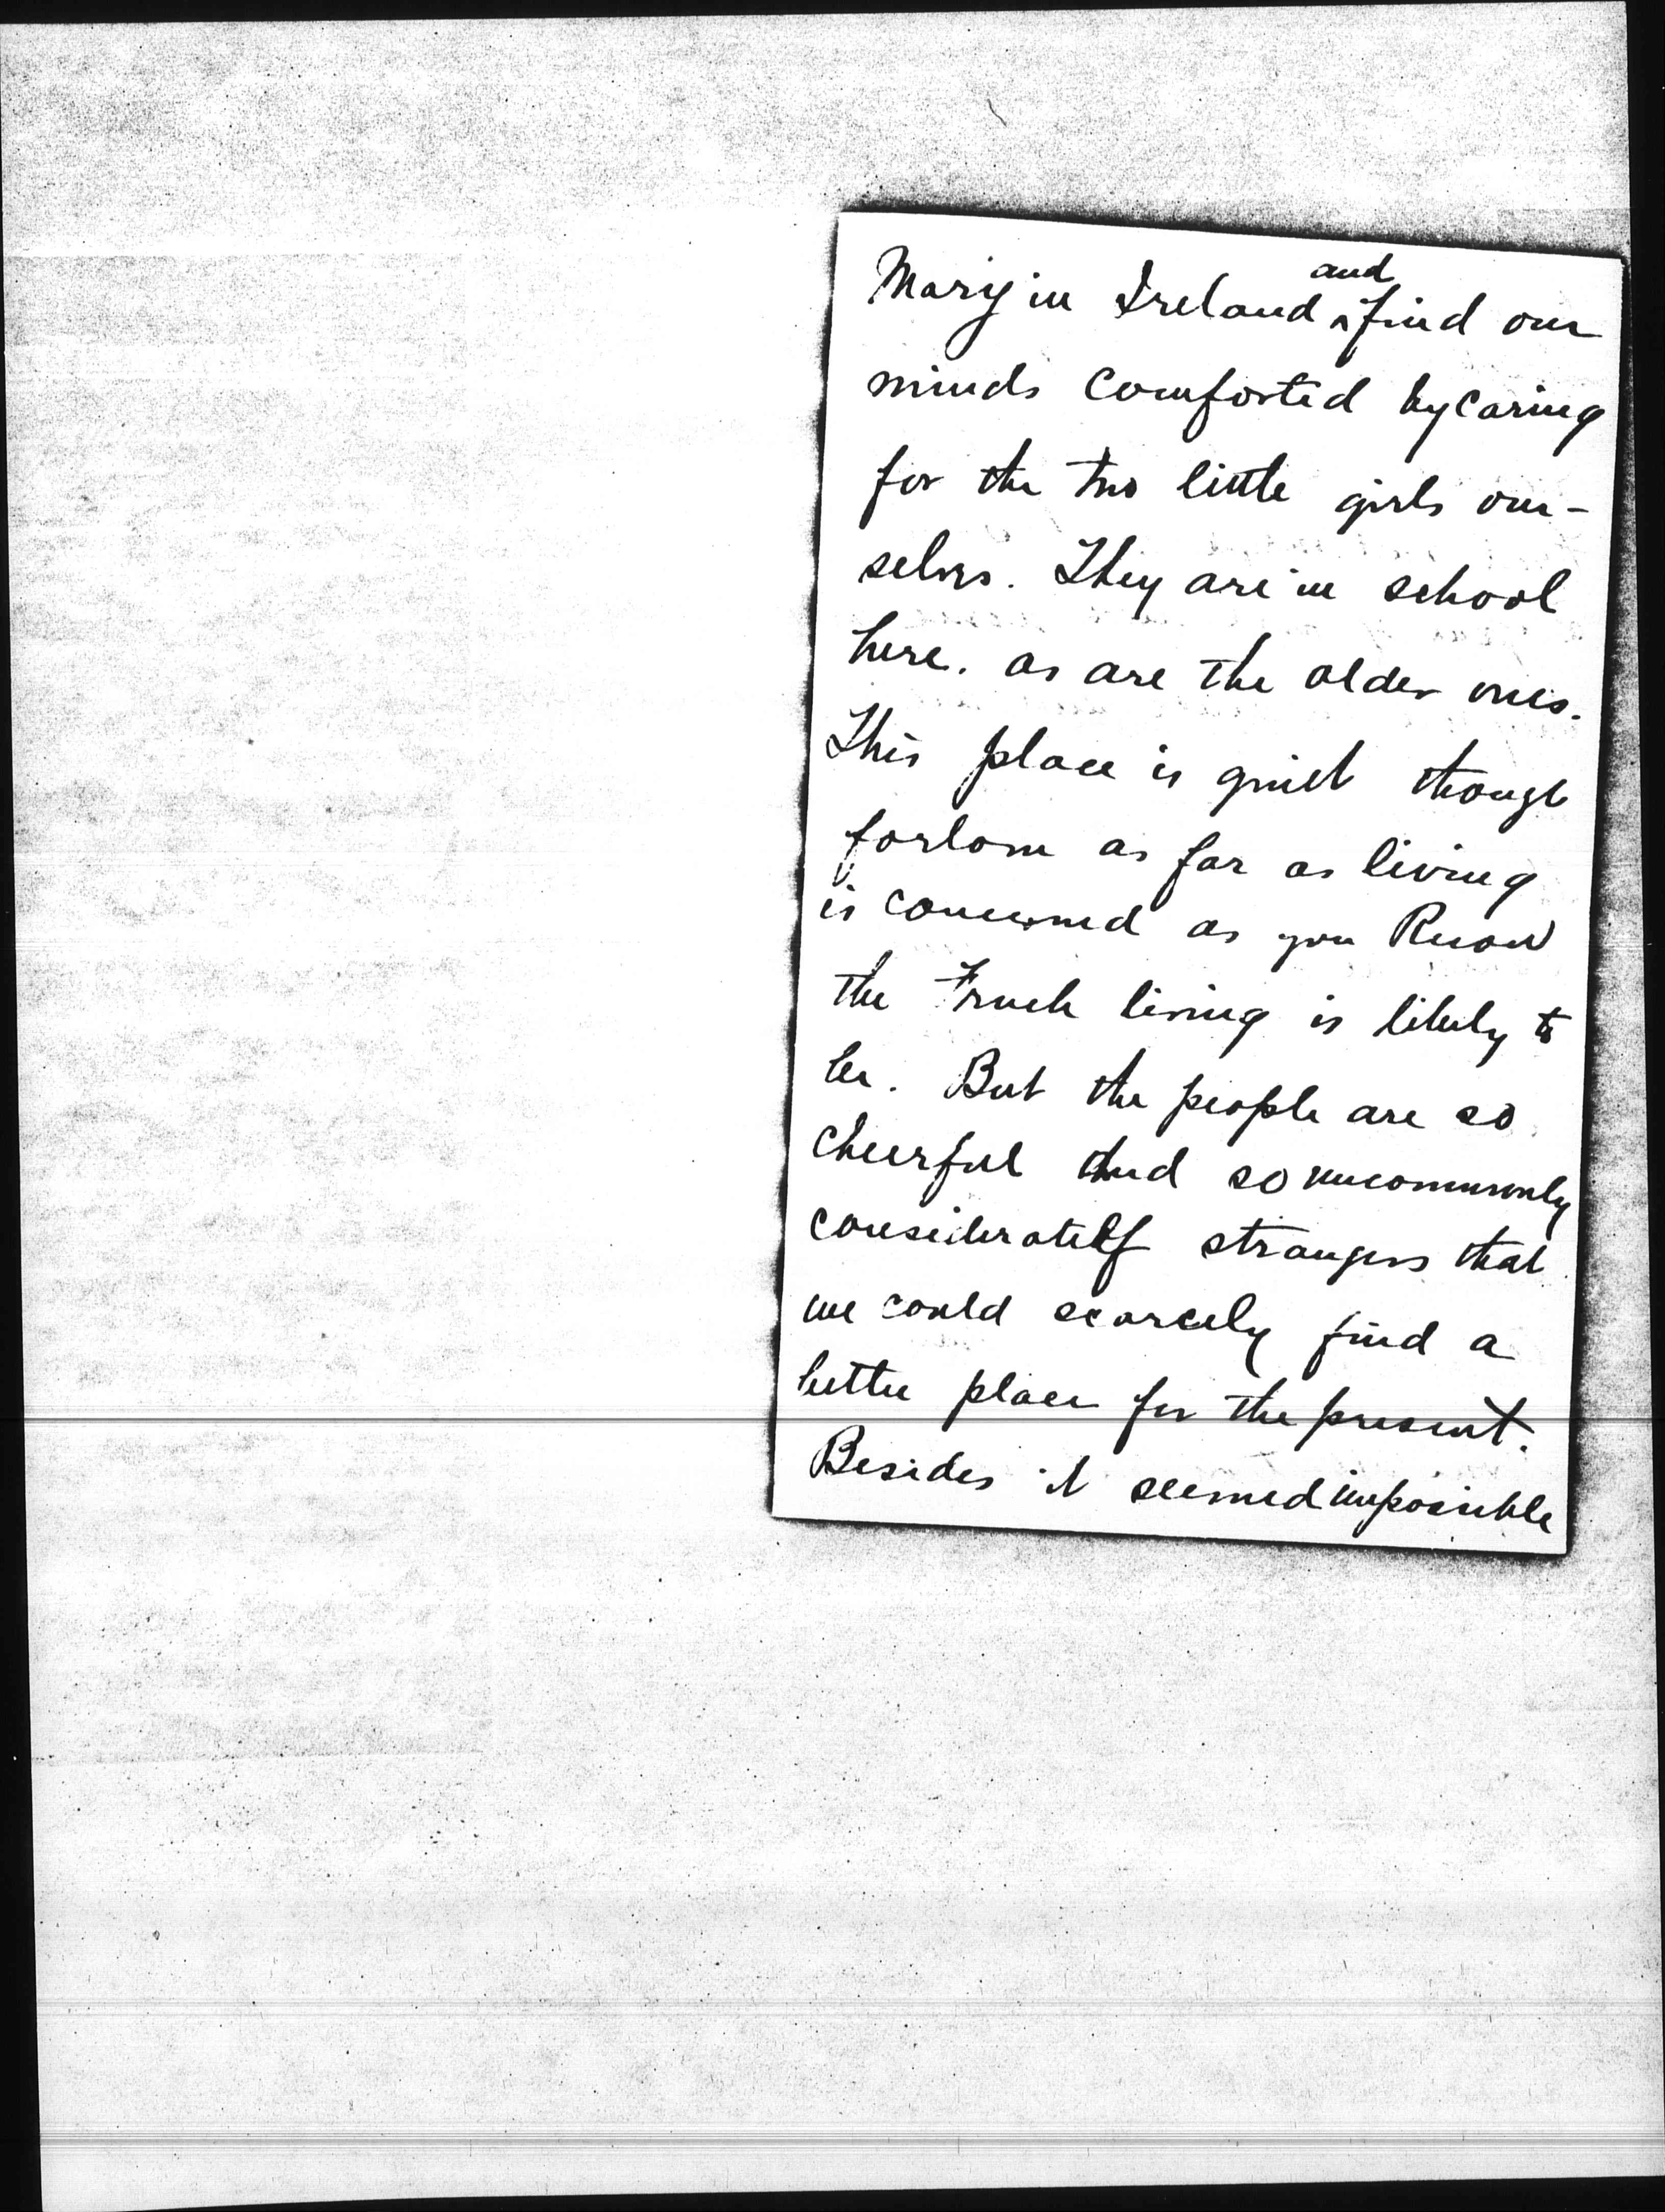 Mary in Ireland and find our
minds comforted by caring
for the two little girls our-
selves. They are in school
here. as are the older ones.
This place is quiet though
forlorn as far as living
is concerned as you Know
the French living is likely to
be. But the people are so
cheerful and so uncommonly
considerate of strangers that
we could scarcely find a
better place for the present.
Besides it seemed impossible